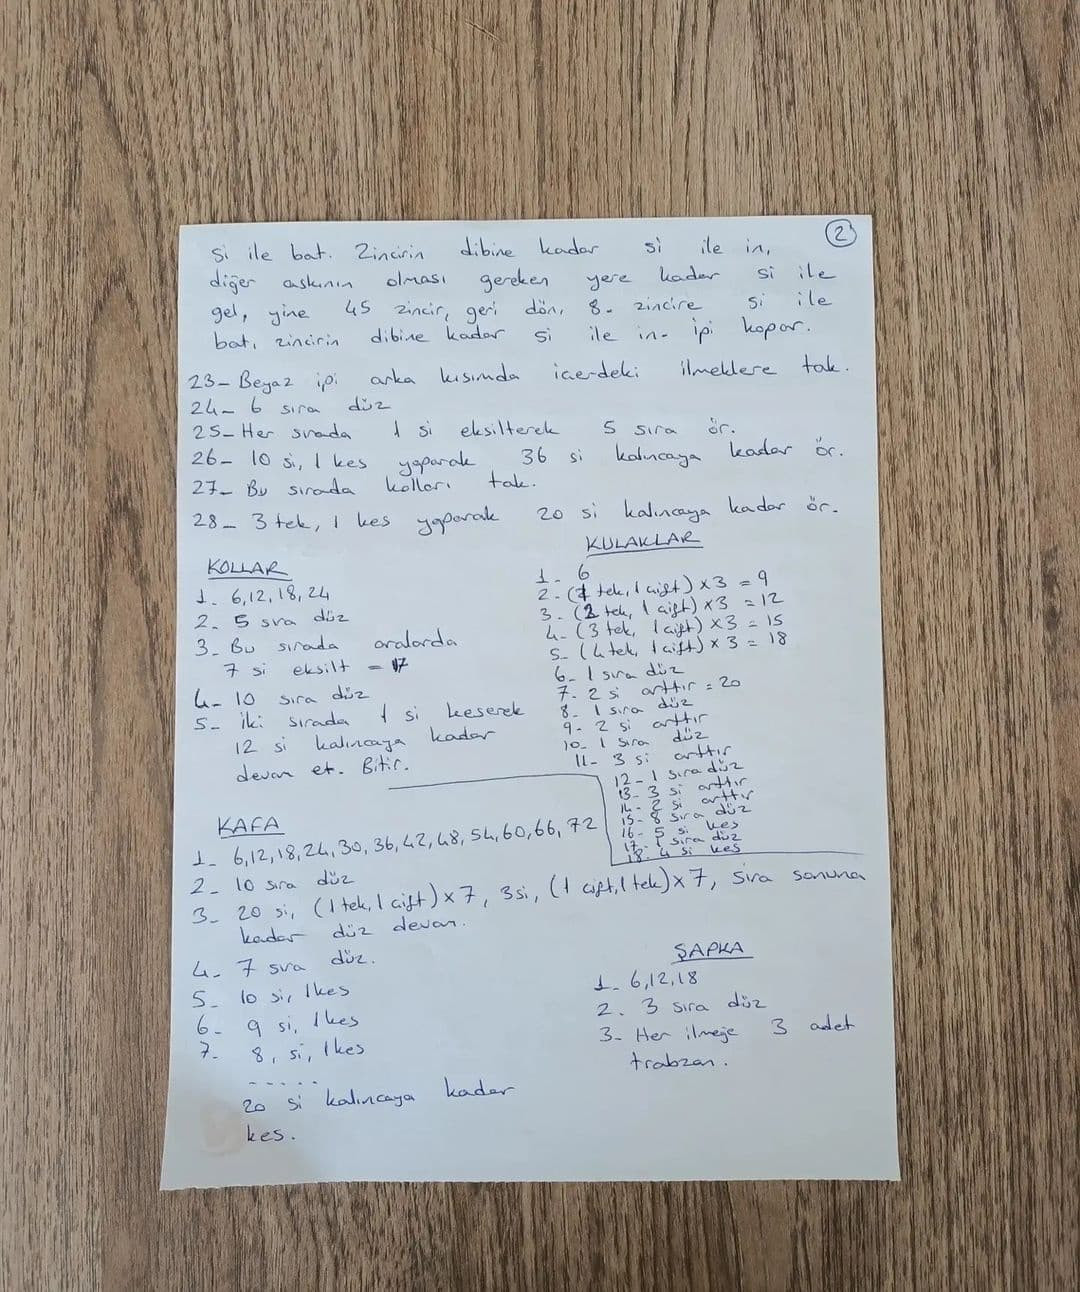 2
si ile bat. Zincirin dibine kadar si ile in,
diğer askının olması gereken yere kadar si ile
gel, yine 45 zincir, geri dön, 8. zincire si ile
bat, zincirin dibine kadar si ile in. ipi kopar.
23- Beyaz ipi arka kısımda içerdeki ilmeklere tak.
24- 6 sıra düz
25- Her sırada 1 si eksilterek 5 sıra ör.
26- 10 si, 1 kes yaparak 36 si kalıncaya kadar ör.
27- Bu sırada kolları tak.
28- 3 tek, 1 kes yaparak 20 si kalıncaya kadar ör.
KOLLAR
1. 6,12,18,24
2. 5 sıra düz
3. Bu sırada aralarda
7 si eksilt = 17
4- 10 sıra düz
5- İki sırada 1 si keserek
12 si kalıncaya kadar
devam et. Bitir.
KULAKLAR
1- 6
2- (1 tek, 1 çift) x3 = 9
3- (2 tek, 1 çift) x3 = 12
4- (3 tek, 1 çift) x3 = 15
5- (4 tek, 1 çift) x3 = 18
6- 1 sıra düz
7- 2 si arttır = 20
8- 1 sıra düz
9- 2 si arttır
10- 1 sıra düz
11- 3 si arttır
12- 1 sıra düz
13- 3 si arttır
14- 2 si arttır
15- 8 sıra düz
16- 5 si kes
17- 1 sıra düz
18- 4 si kes
KAFA
1- 6,12,18,24,30,36,42,48,54,60,66,72
2- 10 sıra düz
3- 20 si, (1 tek, 1 çift) x 7, 3 si, (1 çift, 1 tek) x 7, Sıra sonuna
kadar düz devam.
4- 7 sıra düz.
5- 10 si, 1 kes
6- 9 si, 1 kes
7- 8, si, 1 kes
- - - - -
20 si kalıncaya kadar
kes.
ŞAPKA
1- 6,12,18
2. 3 sıra düz
3- Her ilmeğe 3 adet
trabzan.